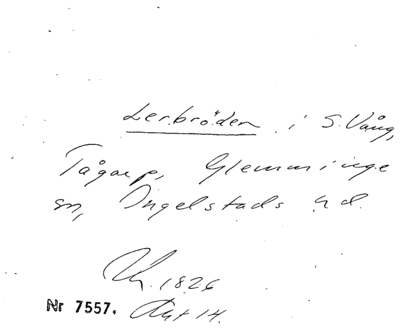 Lerbröden i S. Vång,
Tågarp, Glemminge
sn, Ingelstads hd.
1826
Nr 7557.
14.